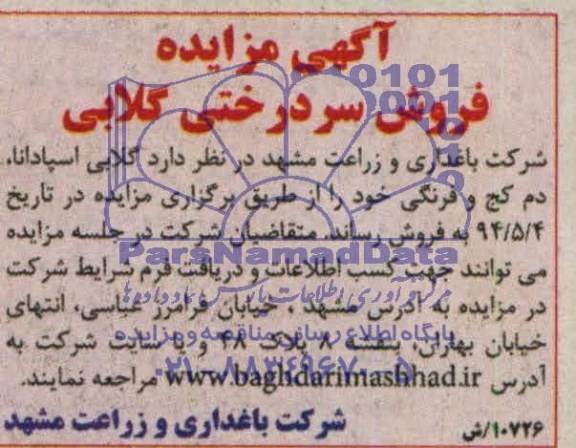 آگهی مزایده
فروش سردرختی گلابی
شرکت باغداری و زراعت مشهد در نظر دارد گلابی اسپادانا،
دم کج و فرنگی خود را از طریق برگزاری مزایده در تاریخ
۹۴/۵/۴ به فروش رساند. متقاضیان شرکت در جلسه مزایده
می توانند جهت کسب اطلاعات و دریافت فرم شرایط شرکت
در مزایده به آدرس مشهد ، خیابان فرامرز عباسی، انتهای
خیابان بهاران، بنفشه ۸ پلاک ۲۸ و یا سایت شرکت به
آدرس www.baghdarimashhad.ir مراجعه نمایند.
شرکت باغداری و زراعت مشهد
۱۰۷۲۶/ش
ParsNamadData
مرکز فرآوری اطلاعات پارس نماد داده ها
پایگاه اطلاع رسانی مناقصه و مزایده
۰۲۱-۸۸۳۴۹۶۷۰-۵